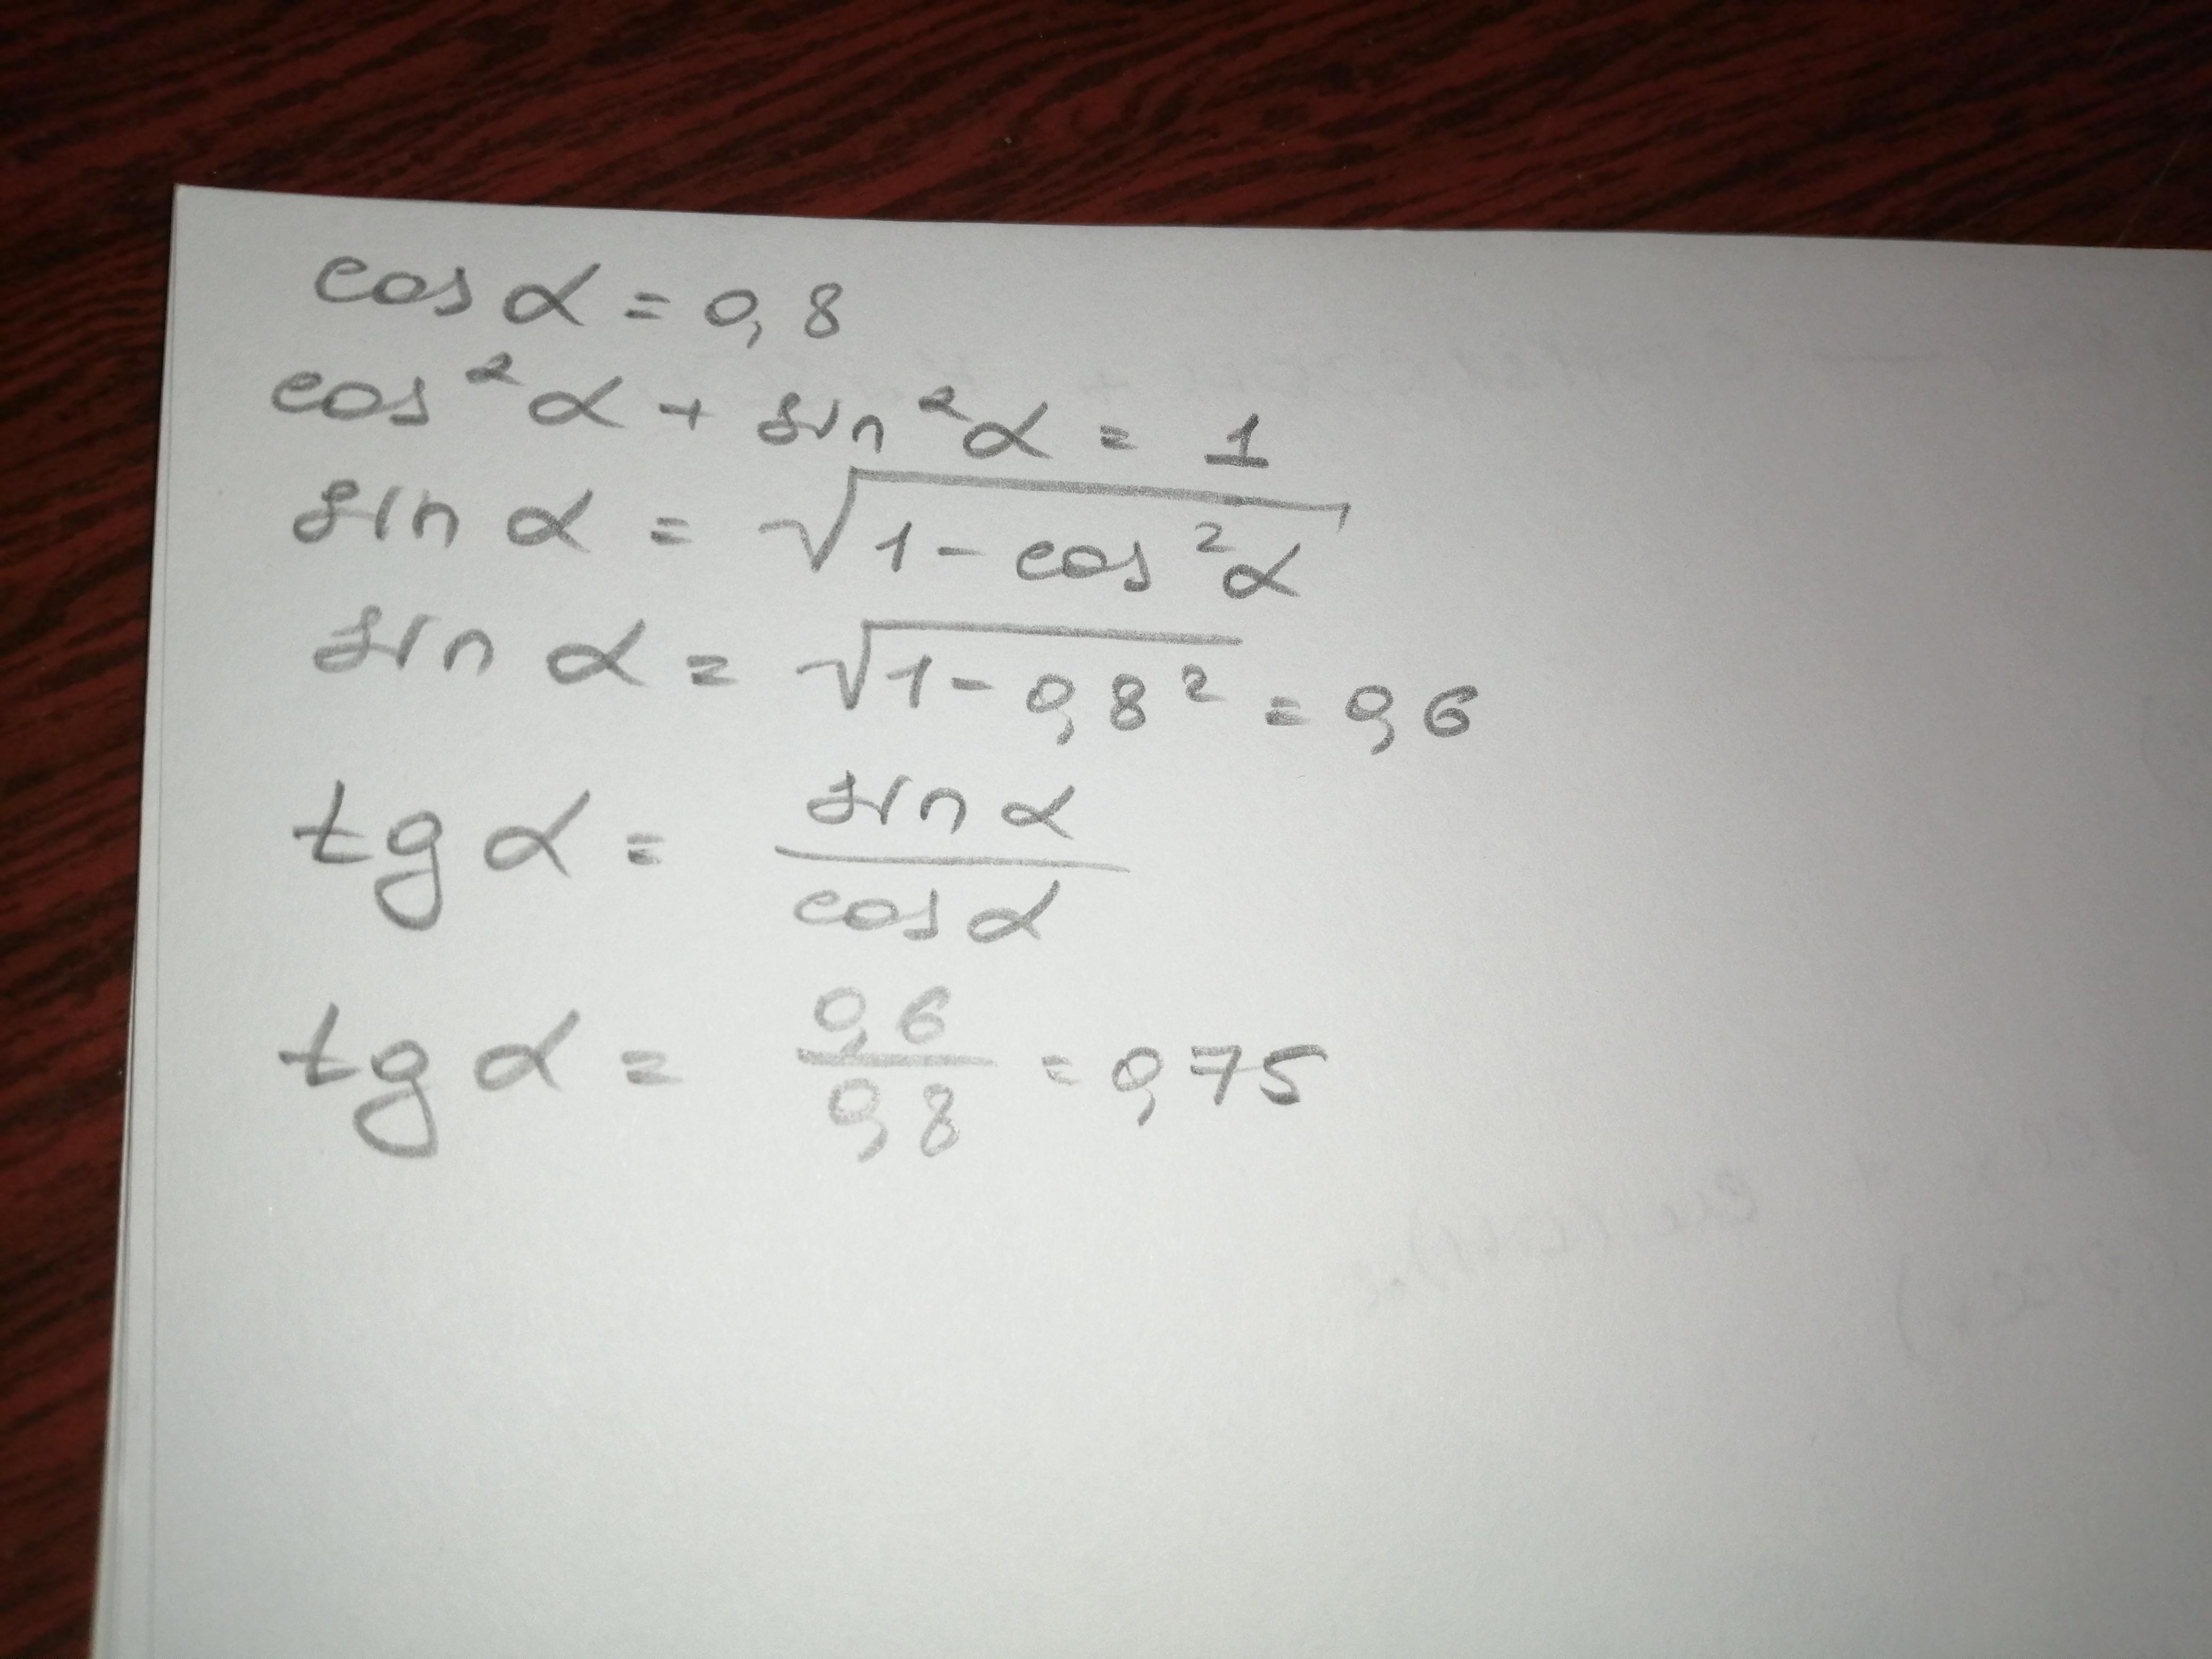 cos α = 0,8
cos² α + sin² α = 1
sin α = √(1 - cos² α)
sin α = √(1 - 0,8²) = 0,6
tg α = sin α / cos α
tg α = 0,6 / 0,8 = 0,75